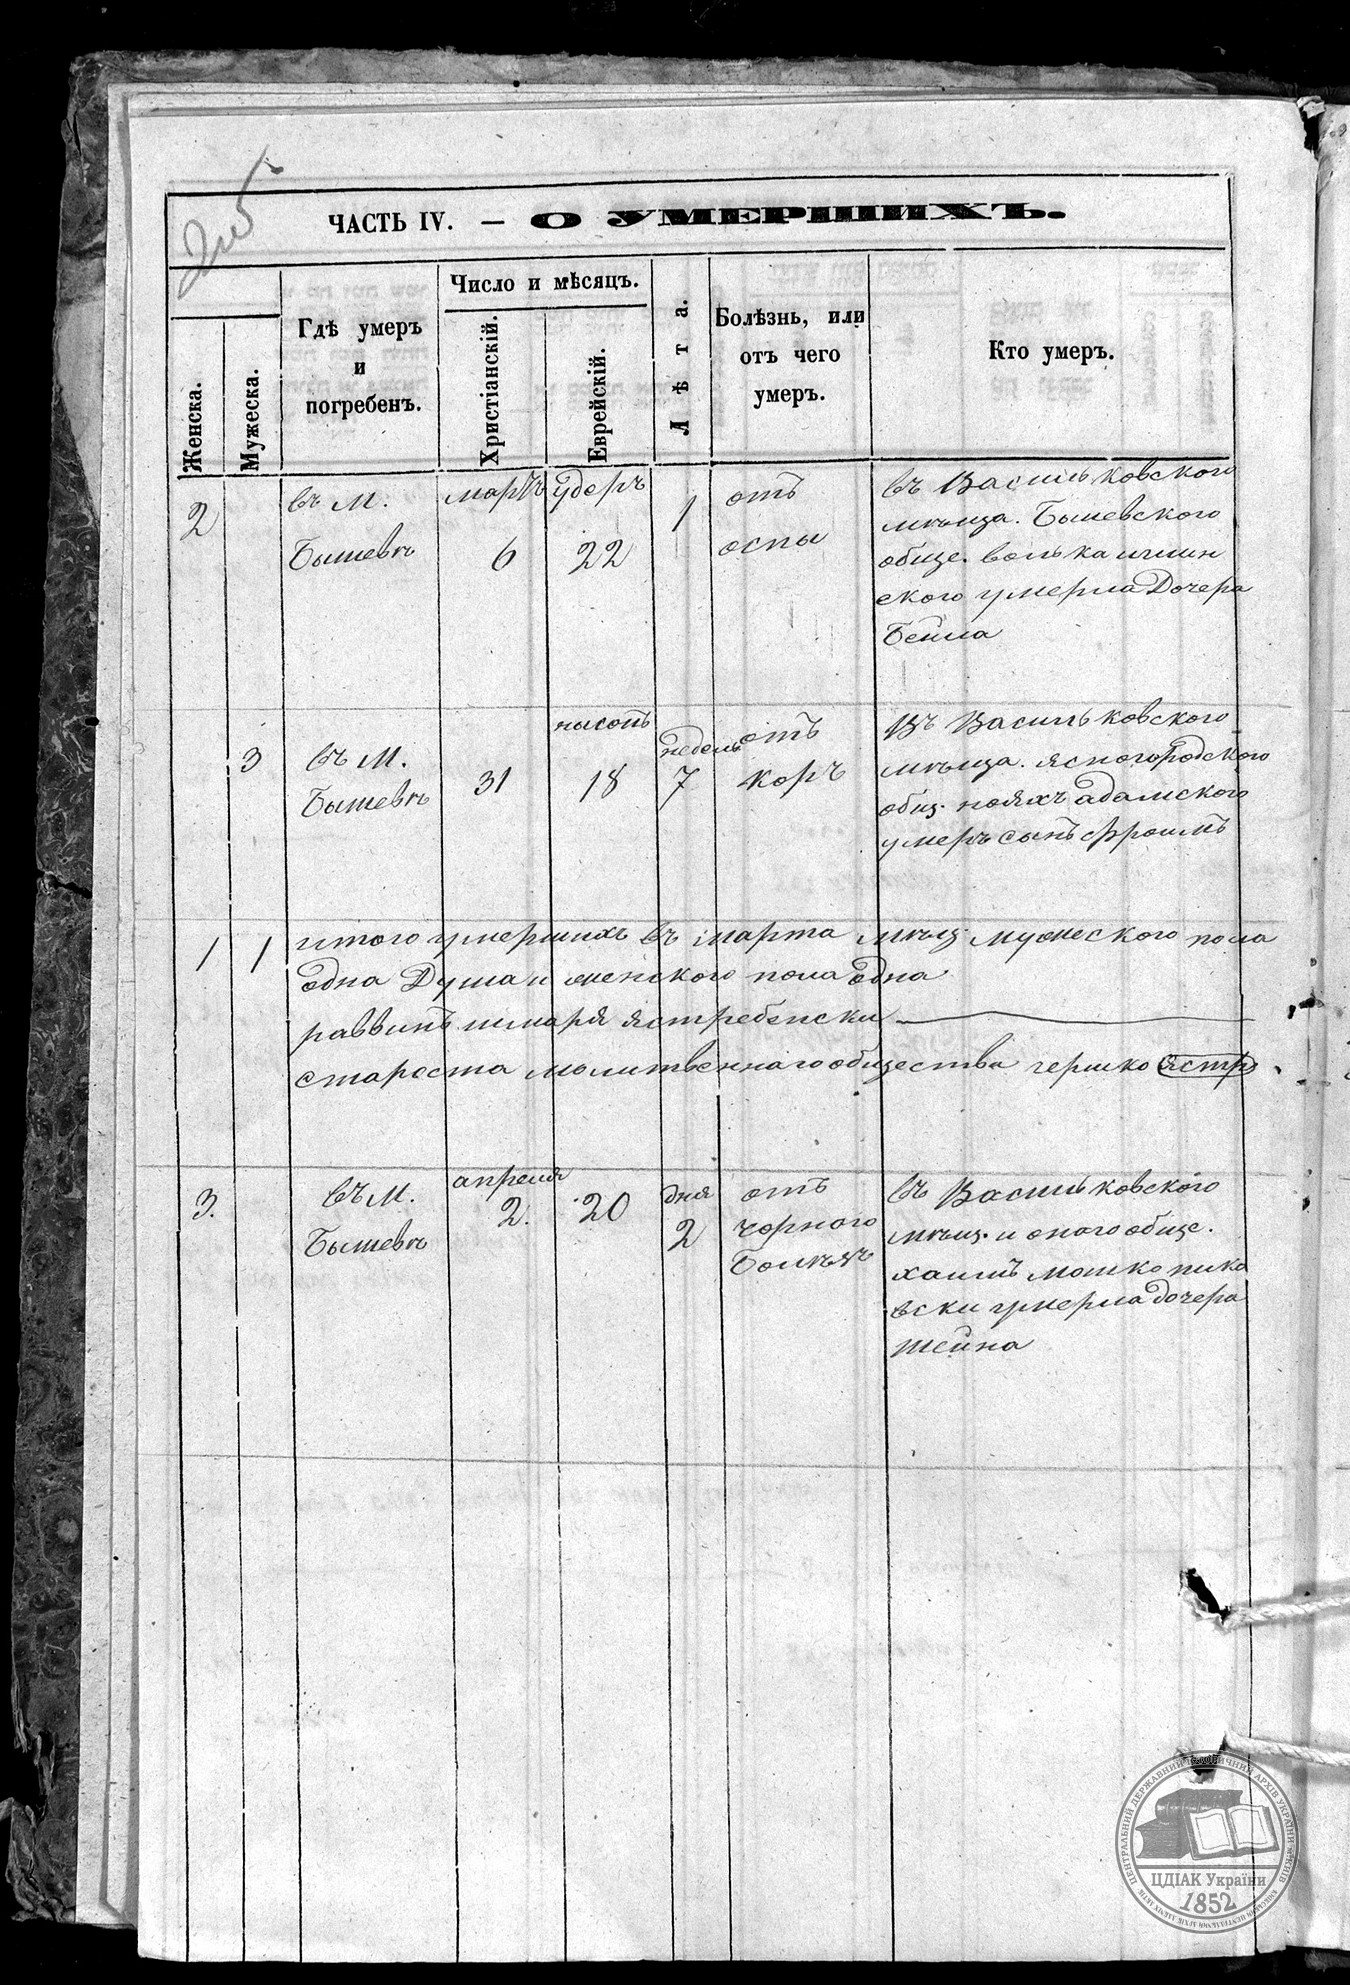 ЧАСТЬ IV. — О УМЕРШИХЪ.
Женска.
Мужеска.
Гдѣ умеръ
и
погребенъ.
Число и мѣсяцъ.
Христіанскій.
Еврейскій.
Лѣта.
Болѣзнь, или
отъ чего
умеръ.
Кто умеръ.
2
въ М.
Бышевѣ
мартъ
6
удеръ
22
1
отъ
оспы
въ Васильковского
мѣщa. Бышевского
обще. волька
ского умерла Дочера
Бейла
3
въ М.
Бышевѣ
31
нысонъ
18
недель
7
отъ
коръ
Въ Васильковского
мѣщa. ясногородского
общ. адамского
умеръ сынъ Фроимъ
1 1 итого умершихъ въ марта мѣц. мужеского пола
одна Душа и женского пола одна
раввинъ шмаря ястребенски
староста молитвеннаго общества гершко ястр
3.
въ М.
Бышевѣ
апреля
2.
20
дня
2
отъ
чорного
въ Васильковского
мѣщ. и оного обще.
хаимъ мошко пико
вски умерла дочера
шейна
ЦЕНТРАЛЬНИЙ ДЕРЖАВНИЙ ІСТОРИЧНИЙ АРХІВ УКРАЇНИ М. КИЇВ
ЦДІАК України
1852